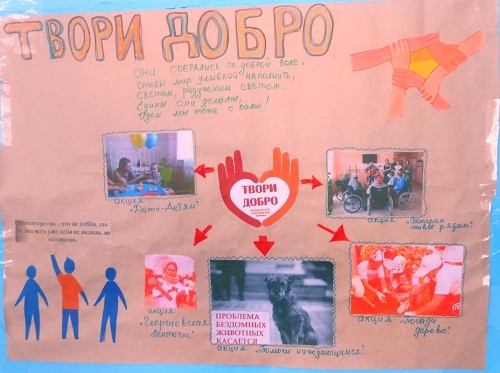 ТВОРИ ДОБРО
ОНИ СОБРАЛИСЬ ПО ДОБРОЙ ВОЛЕ,
ЧТОБЫ МИР УЛЫБКОЙ НАПОЛНИТЬ,
СВЕТОМ, РАДУЖНЫМ СВЕТОМ.
ЕДИНЫ ОНИ ДЕЛАМИ,
ТВОРИ
ДОБРО
акция
"Дети-Детям"
акция "Ветеран
живёт рядом"
это не хобби, это
без чего уже себя не видишь, не
акция
"Георгиевская
ленточка"
ПРОБЛЕМА
БЕЗДОМНЫХ
ЖИВОТНЫХ
КАСАЕТСЯ
акция "Помоги нуждающимся"
акция "Посади
дерево"